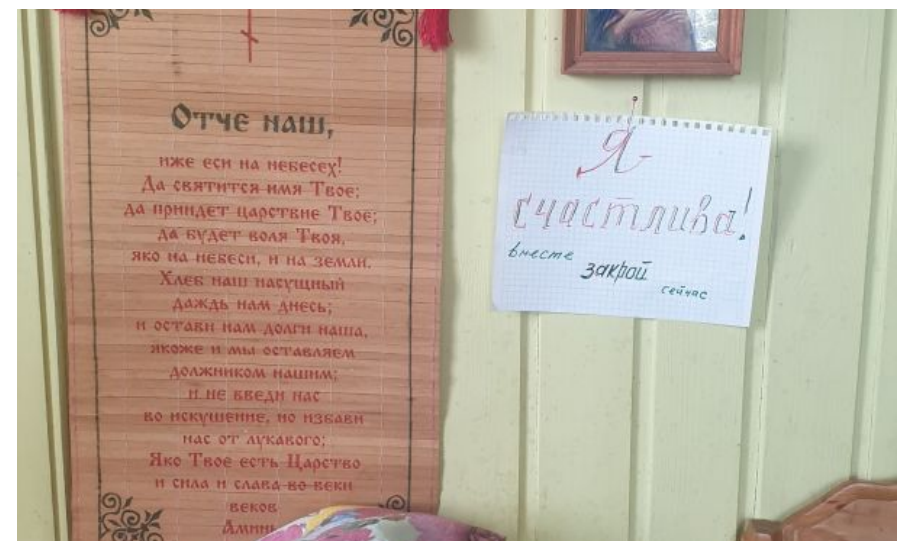 Отче наш,
иже еси на небесех!
Да святится имя Твое;
да приидет царствие Твое;
да будет воля Твоя,
яко на небеси, и на земли.
Хлеб наш насущный
даждь нам днесь;
и остави нам долги наша,
якоже и мы оставляем
должником нашим;
и не введи нас
во искушение, но избави
нас от лукавого;
Яко Твое есть Царство
и сила и слава во веки
веков
Аминь
Я
счастлива!
вместе
закрой
сейчас